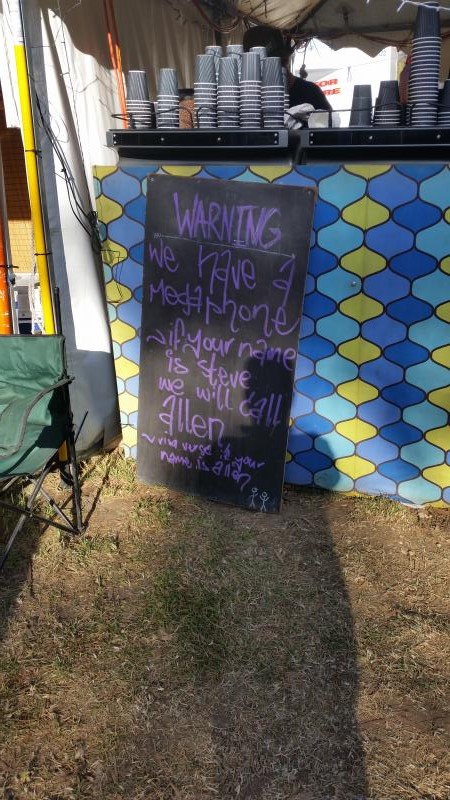 WARNING
we have a
megaphone
~if your name
is steve
we will call
allen
~vive versa if your
name is allan